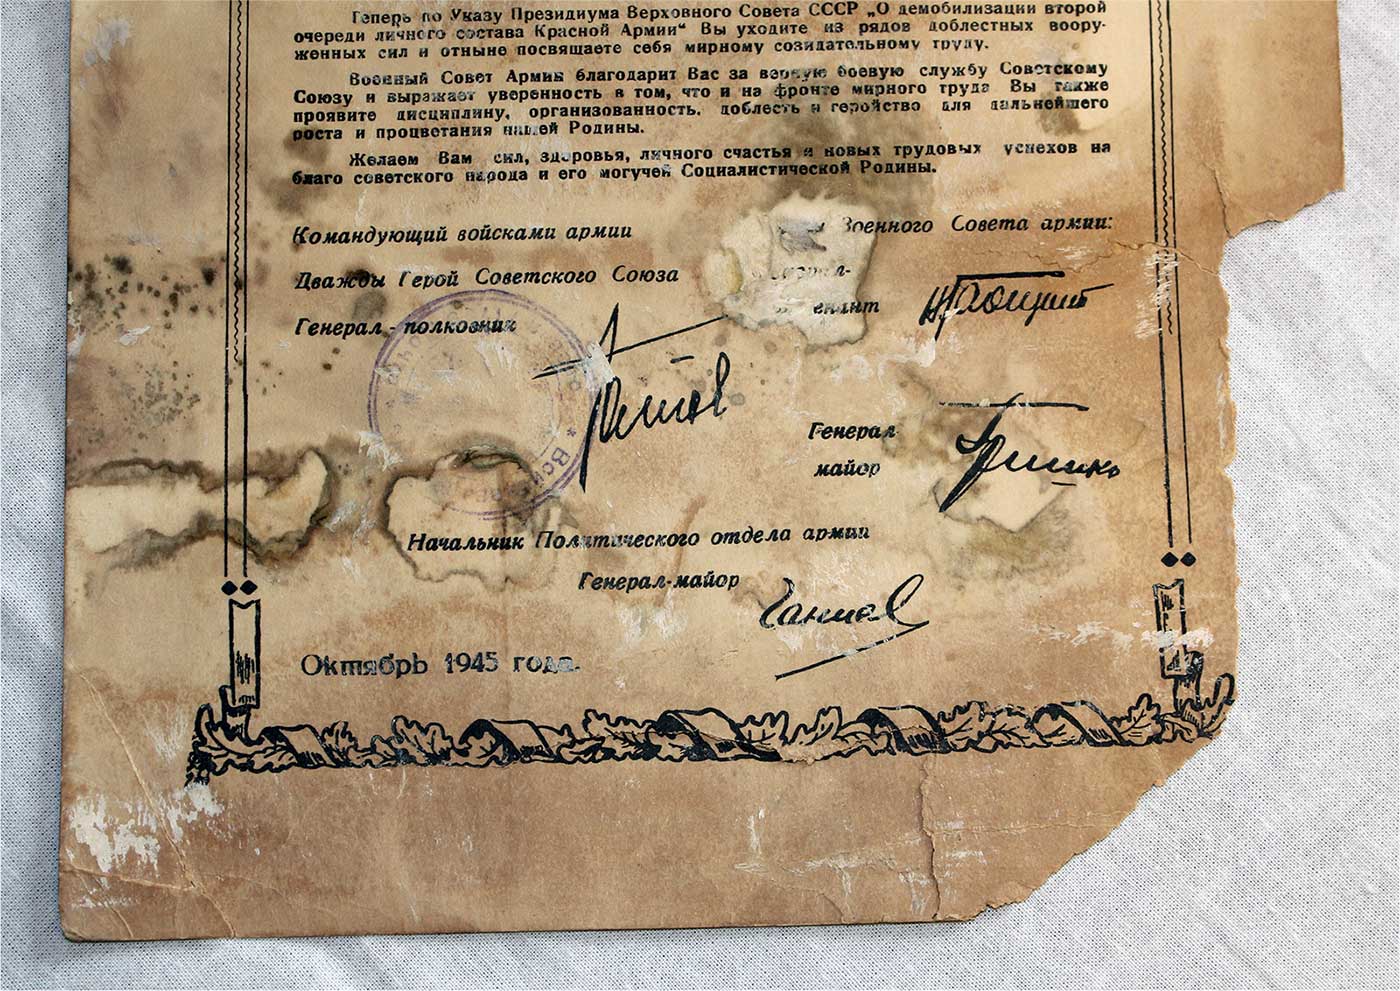 Теперь по Указу Президиума Верховного Совета СССР „О демобилизации второй
очереди личного состава Красной Армии“ Вы уходите из рядов доблестных воору-
женных сил и отныне посвящаете себя мирному созидательному труду.
Военный Совет Армии благодарит Вас за верную боевую службу Советскому
Союзу и выражает уверенность в том, что и на фронте мирного труда Вы также
проявите дисциплину, организованность, доблесть и геройство для дальнейшего
роста и процветания нашей Родины.
Желаем Вам сил, здоровья, личного счастья и новых трудовых успехов на
благо советского народа и его могучей Социалистической Родины.
Командующий войсками армии
Военного Совета армии:
Дважды Герой Советского Союза
Генерал-полковник
Генерал-
майор
Начальник Политического отдела армии
Генерал-майор
Октябрь 1945 года.